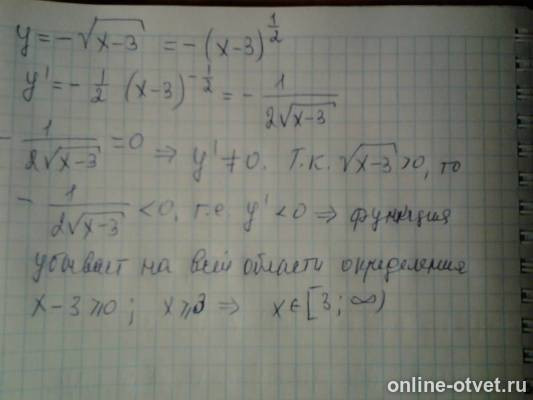 y = -√(x-3) = -(x-3)^(1/2)
y' = -1/2 (x-3)^(-1/2) = - 1/(2√(x-3))
- 1/(2√(x-3)) = 0 ⇒ y' ≠ 0. Т.к. √(x-3) > 0, то
- 1/(2√(x-3)) < 0, т.е y' < 0 ⇒ функция
убывает на всей области определения
x - 3 ⩾ 0 ; x ⩾ 3 ⇒ x ∈ [3 ; ∞)
online-otvet.ru